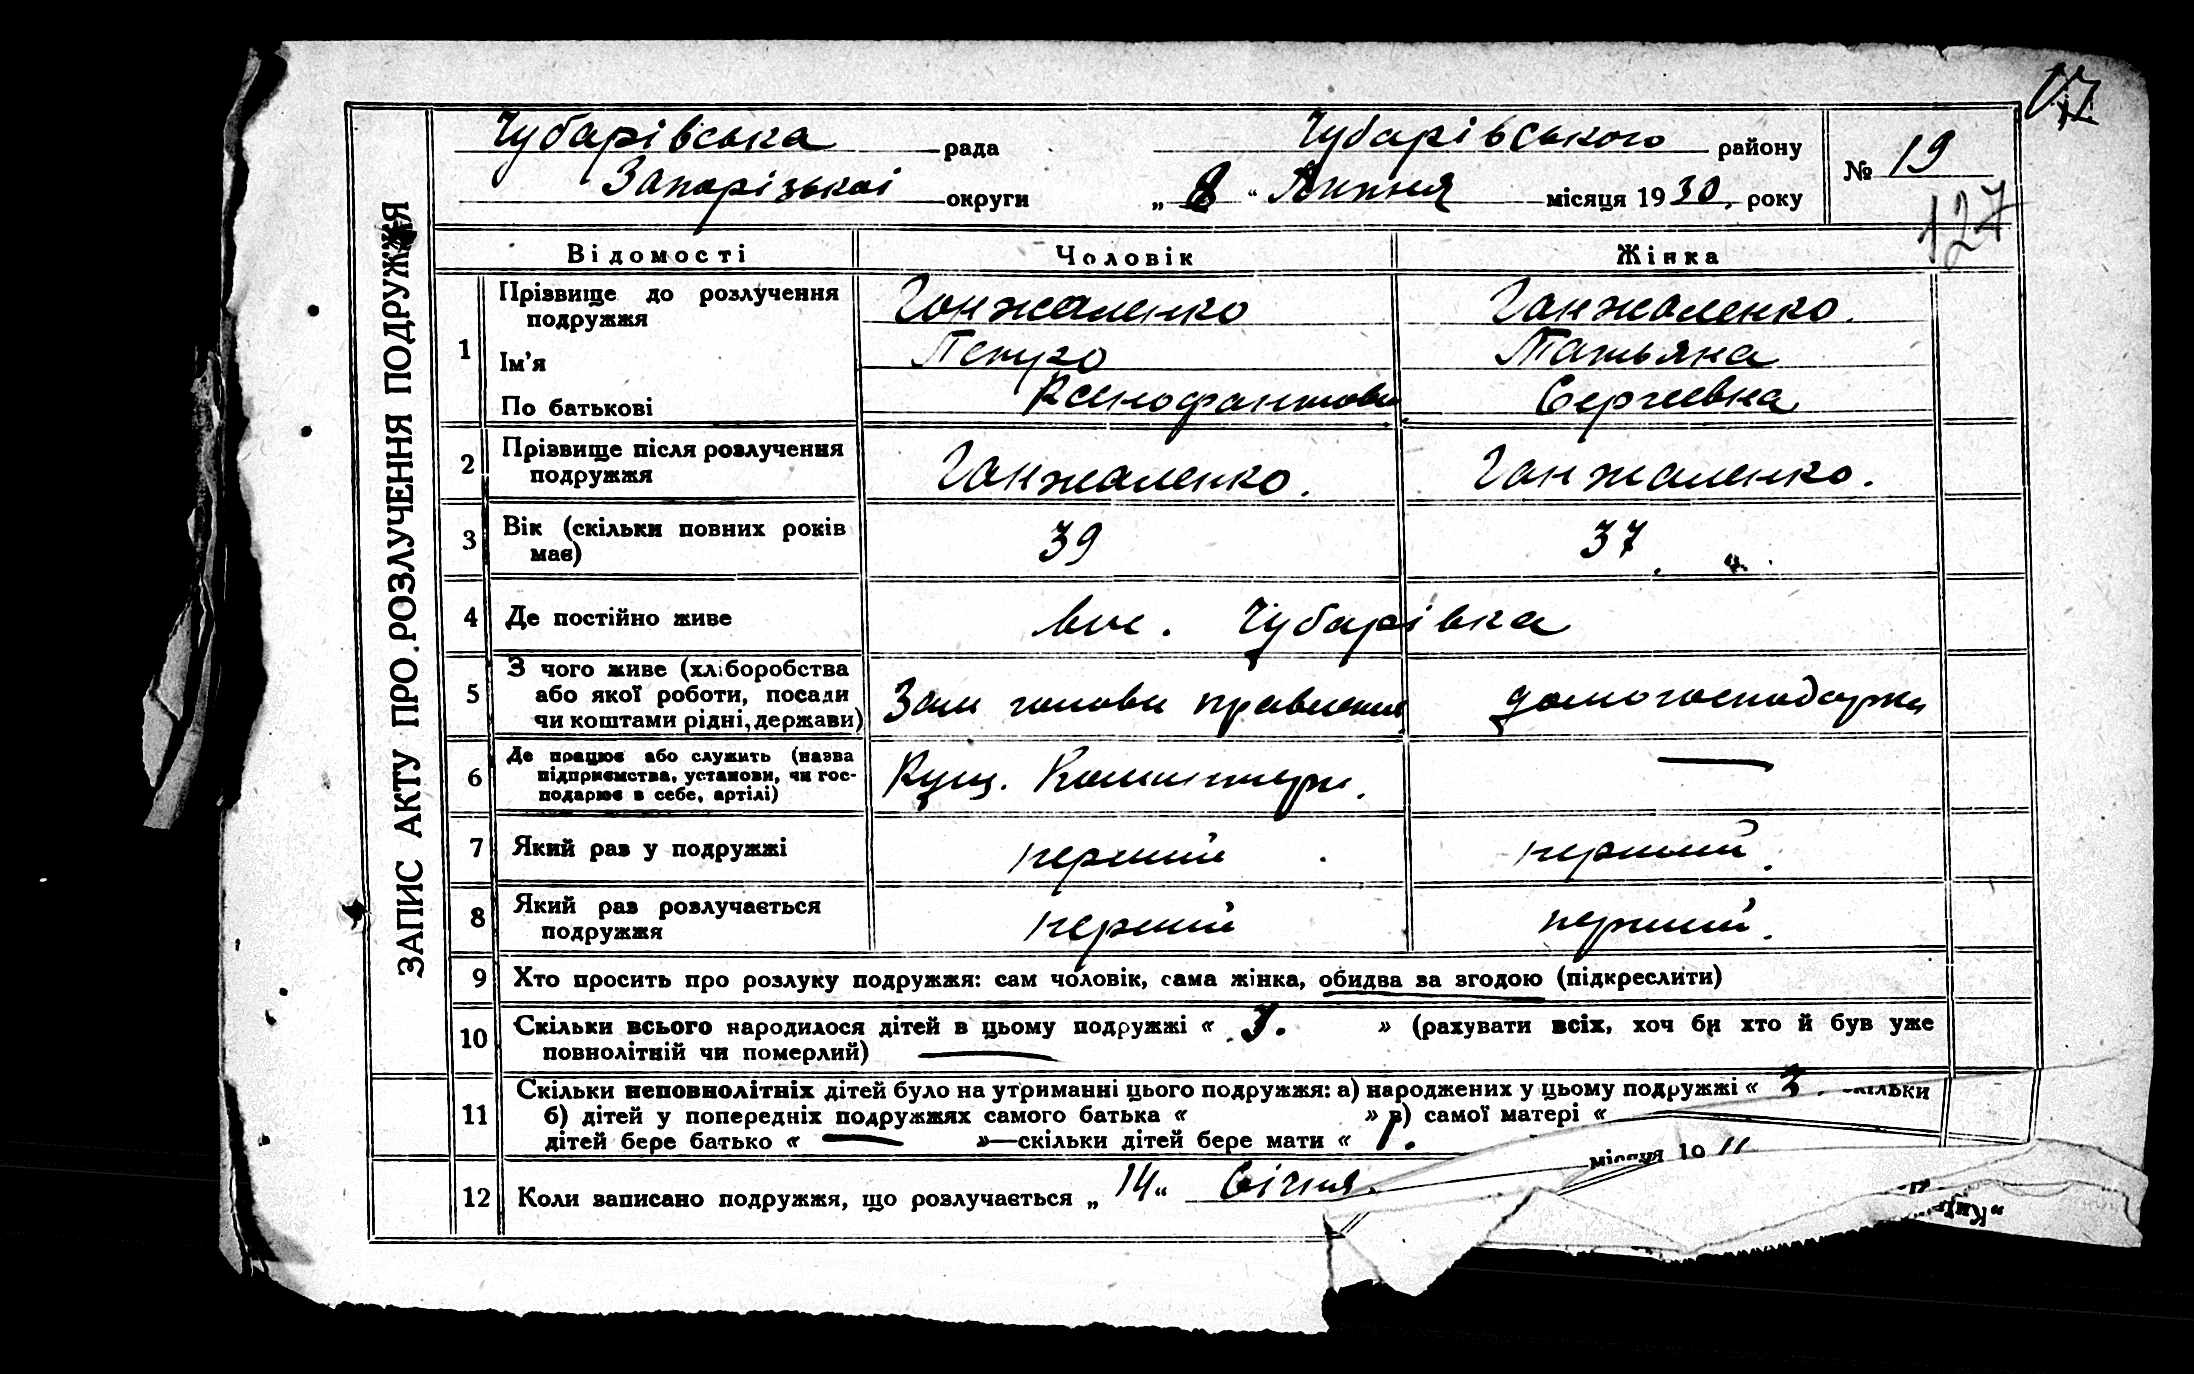 Чубарівська рада Чубарівського району № 19
Запорізької округи „ 8 “ Липня місяця 19 30 року
127
ЗАПИС АКТУ ПРО РОЗЛУЧЕННЯ ПОДРУЖЖЯ
Відомості Чоловік Жінка
1 Прізвище до розлучення подружжя Ганжаленко Ганжаленко.
Ім'я Петро Татьяна
По батькові Ксенофантови Сергеевна
2 Прізвище після розлучення Ганжаленко. Ганжаленко.
подружжя
3 Вік (скільки повних років 39 37
має)
4 Де постійно живе вис. Чубарівка
5 З чого живе (хліборобства
або якої роботи, посади Зам голови правления домогосподарка
чи коштами рідні, держави)
6 Де працює або служить (назва
підприємства, установи, чи гос- Кущ. —
подарює в себе, артілі)
7 Який раз у подружжі перший перший.
8 Який раз розлучається перший перший.
подружжя
9 Хто просить про розлуку подружжя: сам чоловік, сама жінка, обидва за згодою (підкреслити)
10 Скільки всього народилося дітей в цьому подружжі « 3. » (рахувати всіх, хоч би хто й був уже
повнолітній чи померлий)
11 Скільки неповнолітніх дітей було на утриманні цього подружжя: а) народжених у цьому подружжі «
б) дітей у попередніх подружжях самого батька « » в) самої матері «
дітей бере батько « — »—скільки дітей бере мати « 1.
місяця 19 11
12 Коли записано подружжя, що розлучається „ 14 “ Січня.